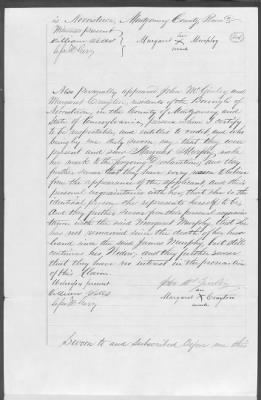 in Norristown, Montgomery County Penn
Witnesses present
Margaret X Murphy
her
mark
Now personally appeared John McGinley and
Margaret Crayton residents of the Borough of
Norristown, in the County of Montgomery and
State of Pennsylvania, persons whom I certify
to be respectable, and entitled to credit, and who
being by me duly sworn say that they were
present and saw Margaret Murphy make
her mark to the foregoing declaration, and they
further swear that they have every reason to believe
from the appearance of the applicant and their
personal acquaintance with her, that she is the
identical person she represents herself to be.
And they further swear from their personal acquain
tance with the said Margaret Murphy, that she
has not remarried since the death of her hus
band since the said James Murphy, but still
continues his Widow, and they further swear
that they have no interest in the prosecution
of this Claim.
Witnesses present
John McGinley
her
Margaret X Crayton
mark
Sworn to and subscribed before me this